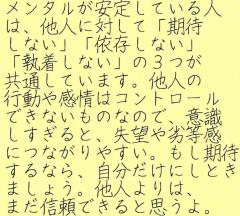 メンタルが安定している人
は、他人に対して「期待
しない」「依存しない」
「執着しない」の３つが
共通しています。他人の
行動や感情はコントロール
できないものなので、意識
しすぎると、失望や劣等感
につながりやすい。もし期待
するなら、自分だけにしとき
ましょう。他人よりは、
まだ信頼できると思うよ。